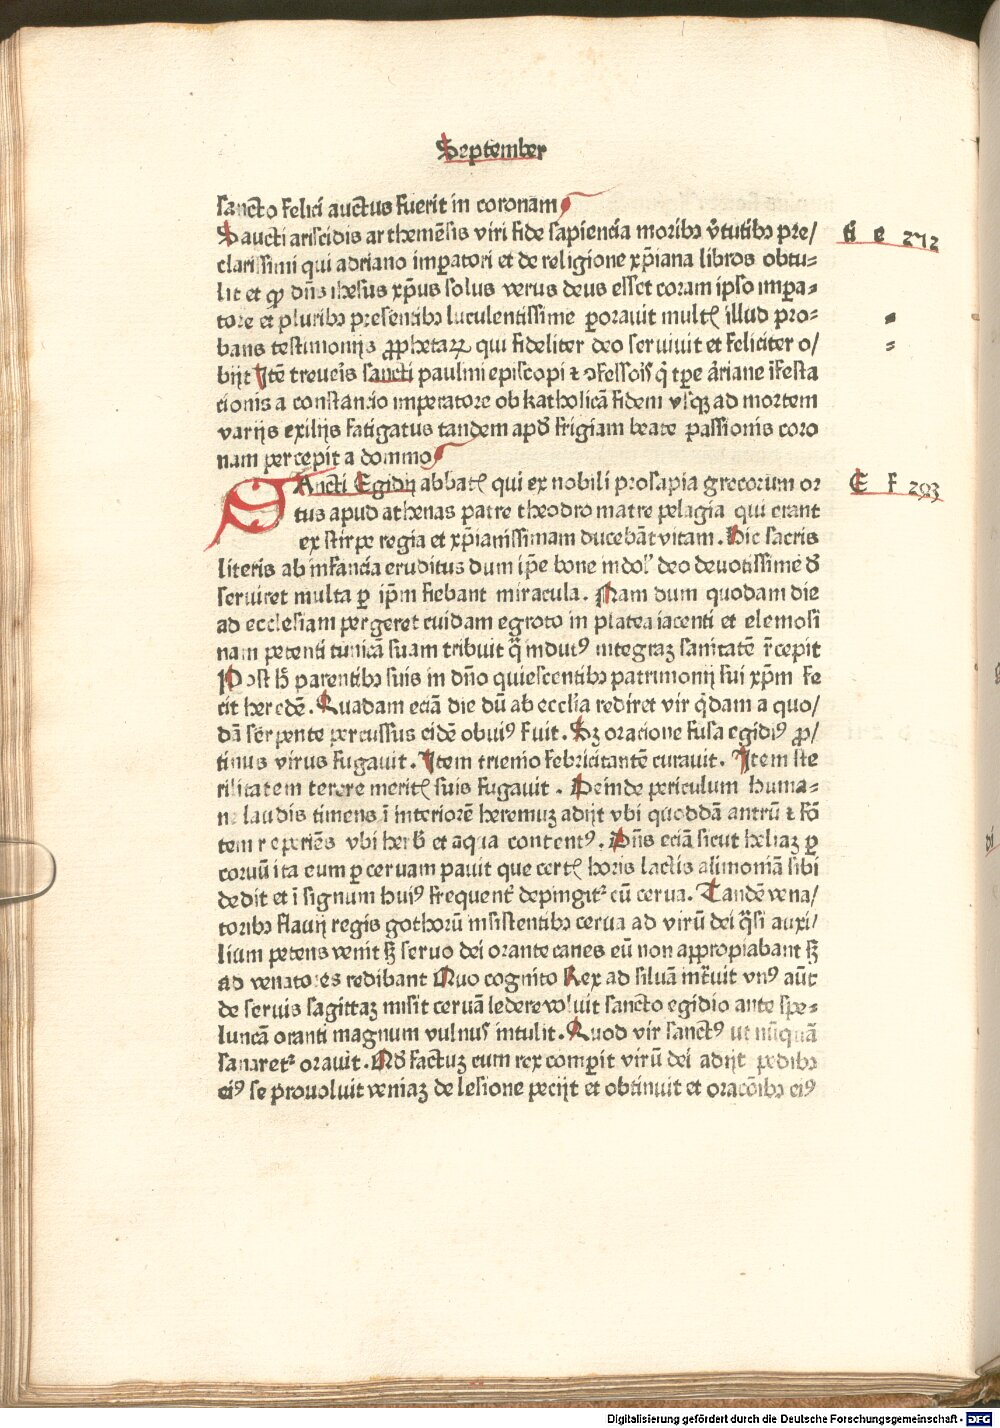 September
sancto Felici auctus fuerit in coronam
Sancti ariscidis arthemēsis viri fide sapiencia moribꝰ v̄tutibꝰ pre/
clarissimi qui adriano imꝑatori et de religione xp̄iana libros obtu⸗
lit et ꝙ dn̄s ihesus xp̄us solus verus deus esset coram ipso imꝑa⸗
tore et pluribꝰ presentibꝰ luculentissime ꝑorauit multꝭ illud pro⸗
bans testimonijs ꝓphetaꝝ qui fideliter deo seruiuit et feliciter o/
bijt Itē treueīs sancti paulini episcopi ⁊ ꝯfessoīs q̄ tꝑe āriane īfesta
cionis a constancio imperatore ob katholicā fidem vsqꝫ ad mortem
varijs exilijs fatigatus tandem apð frigiam beate passionis coro
nam percepit a domino
SAncti Egidij abbatꝭ qui ex nobili prosapia grecorum or
tus apud athenas patre theodro matre pelagia qui erant
ex stirpe regia et xp̄ianissimam ducebāt vitam. Hic sacris
literis ab infancia eruditus dum ip̄e bone indolꝭ deo deuotissime d̄
seruiret multa ꝑ ip̄m fiebant miracula. Nam dum quodam die
ad ecclesiam pergeret cuidam egroto in platea iacenti et elemosi
nam petenti tunicā suam tribuit q̄ indutꝰ integraꝫ sanitatē r̄cepit
Post h̄ parentibꝰ suis in dn̄o quiescentibꝰ patrimonij sui xp̄m fe
cit heredē. Quadam eciā die dū ab ecclīa rediret vir q̄dam a quo/
dā serpente percussus eidē obuiꝰ fuit. Sꝫ oracione fusa egidiꝰ ꝓ/
tinus virus fugauit. Item trienio febricitantē curauit. Item ste
rilitatem terere meritꝭ suis fugauit. Deinde periculum huma⸗
ne laudis timens ī interiorē heremuꝫ adijt vbi quoddā antrū ⁊ fō
tem reperiēs vbi herb̄ et aqua contentꝰ. Dn̄s eciā sicut heliaꝫ ꝑ
coruū ita eum ꝑ ceruam pauit que certꝭ horis lactis alimoniā sibi
dedit et ī signum huiꝰ frequent̄ depingitꝛ cū cerua. Tandē vena/
toribꝰ flauij regis gothorū insistentibꝰ cerua ad virū dei q̄si auxi/
lium petens venit sꝫ seruo dei orante canes eū non appropiabant sꝫ
ad venatores redibant Quo cognito Rex ad siluā int̄uit vnꝰ aūt
de seruis sagittaꝫ misit ceruā ledere voluit sancto egidio ante spe⸗
luncā oranti magnum vulnus intulit. Quod vir sanctꝰ ut nūquā
sanaretꝛ orauit. Qð factuꝫ cum rex comꝑit virū dei adijt pedibꝰ
eiꝰ se prouoluit veniaꝫ de lesione pecijt et obtinuit et oracōibꝰ eiꝰ
ti e 272
E F 293
Digitalisierung gefördert durch die Deutsche Forschungsgemeinschaft - DFG